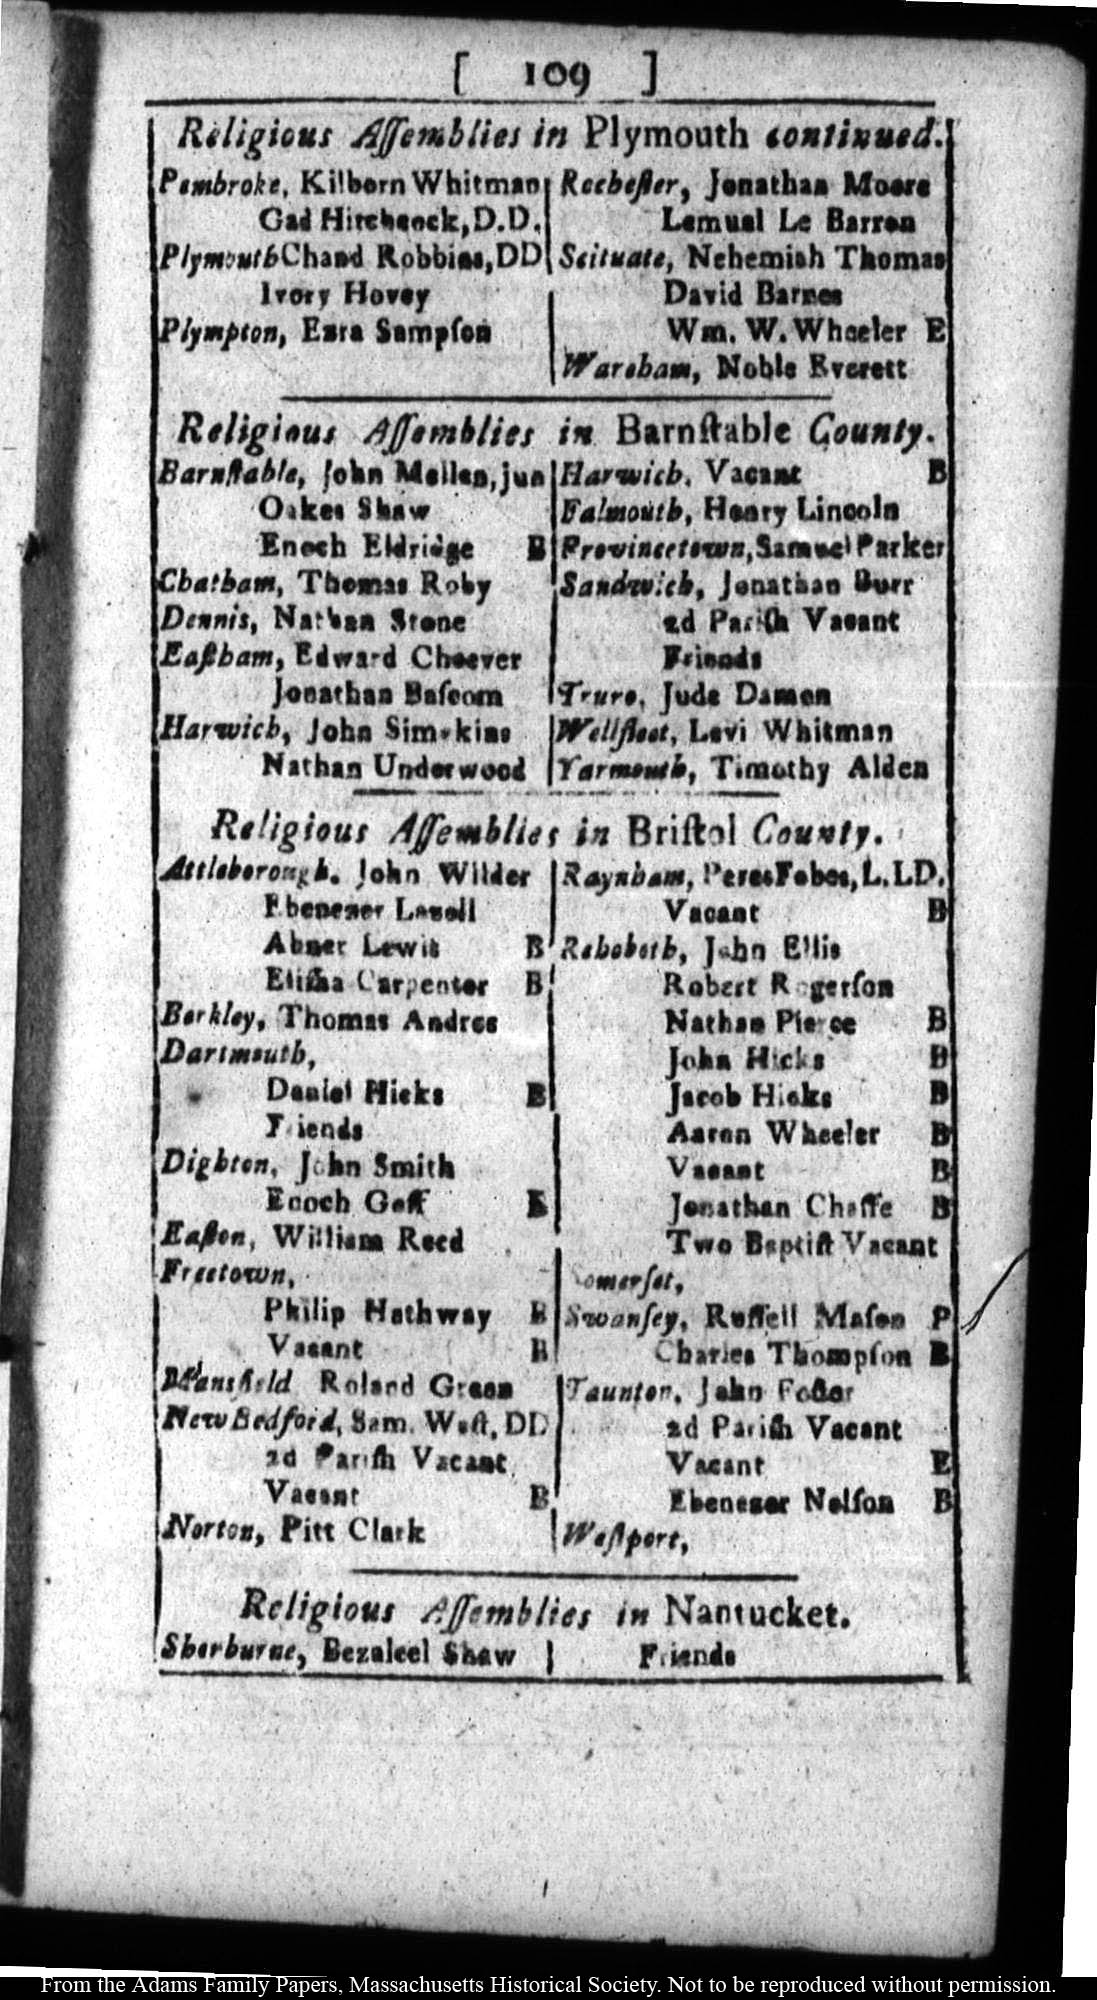 [ 109 ]
Religious Aſſemblies in Plymouth continued.
Pembroke, Kilborn Whitman
Gad Hitchcock, D.D.
Plymouth Chand Robbins, DD
Ivory Hovey
Plympton, Ezra Sampſon
Rocheſter, Jonathan Moore
Lemual Le Barron
Scituate, Nehemiah Thomas
David Barnes
Wm. W. Wheeler E
Wareham, Noble Everett
Religious Aſſemblies in Barnſtable County.
Barnſtable, John Mellen, jun
Oakes Shaw
Enoch Eldridge B
Chatham, Thomas Roby
Dennis, Nathan Stone
Eaſtham, Edward Cheever
Jonathan Baſcom
Harwich, John Simpkins
Nathan Underwood
Harwich, Vacant B
Falmouth, Henry Lincoln
Provincetown, Samuel Parker
Sandwich, Jonathan Burr
2d Pariſh Vacant
Friends
Truro, Jude Damon
Wellfleet, Levi Whitman
Yarmouth, Timothy Alden
Religious Aſſemblies in Briſtol County.
Attleborough. John Wilder
Ebenezer Lazell
Abner Lewis B
Eliſha Carpenter B
Berkley, Thomas Andros
Dartmouth,
Daniel Hicks B
Friends
Dighton, John Smith
Enoch Goff B
Eaſton, William Reed
Freetown,
Philip Hathway B
Vacant B
Mansfield Roland Green
New Bedford, Sam. Weſt, DD
2d Pariſh Vacant
Vacant B
Norton, Pitt Clark
Raynham, Peres Fobes, L.LD.
Vacant B
Rehoboth, John Ellis
Robert Rogerſon
Nathan Pierce B
John Hicks B
Jacob Hicks B
Aaron Wheeler B
Vacant B
Jonathan Chaffe B
Two Baptiſt Vacant
Somerſet,
Swanſey, Ruſſell Maſon P
Charles Thompſon B
Taunton, John Foſter
2d Pariſh Vacant
Vacant E
Ebenezer Nelſon B
Weſtport,
Religious Aſſemblies in Nantucket.
Sherburne, Bezaleel Shaw
Friends
From the Adams Family Papers, Massachusetts Historical Society. Not to be reproduced without permission.